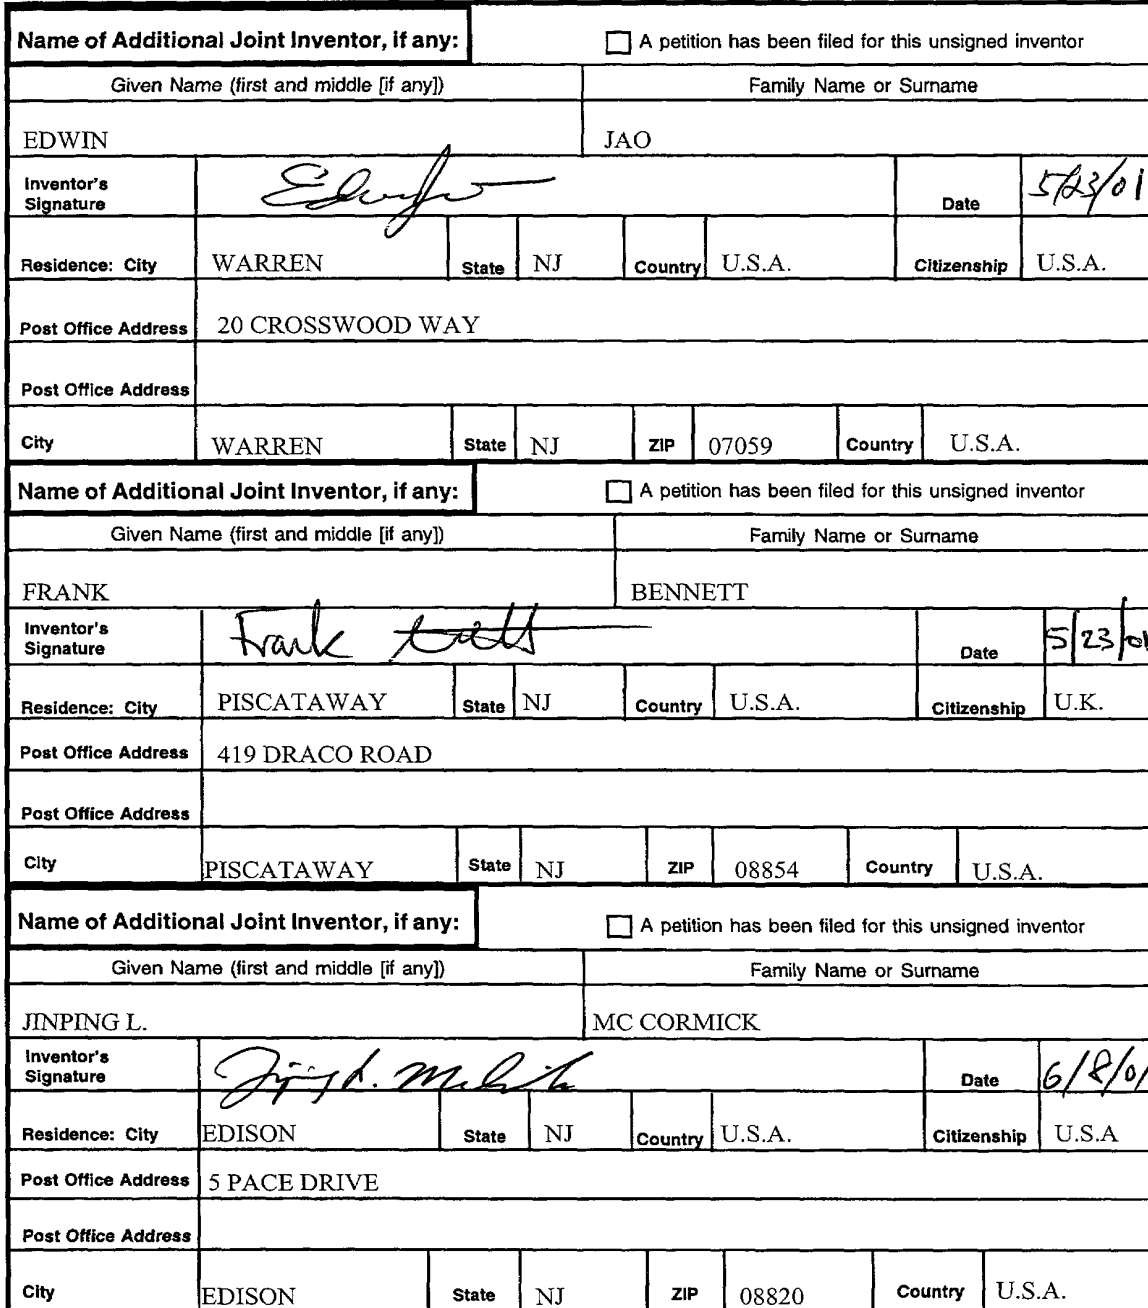 Name of Additional Joint Inventor, if any: A petition has been filed for this unsigned inventor
Given Name (first and middle [if any]) Family Name or Surname
EDWIN JAO
Inventor's Signature Date 5/23/01
Residence: City WARREN State NJ Country U.S.A. Citizenship U.S.A.
Post Office Address 20 CROSSWOOD WAY
Post Office Address
City WARREN State NJ ZIP 07059 Country U.S.A.
Name of Additional Joint Inventor, if any: A petition has been filed for this unsigned inventor
Given Name (first and middle [if any]) Family Name or Surname
FRANK BENNETT
Inventor's Signature Frank Date 5/23/01
Residence: City PISCATAWAY State NJ Country U.S.A. Citizenship U.K.
Post Office Address 419 DRACO ROAD
Post Office Address
City PISCATAWAY State NJ ZIP 08854 Country U.S.A.
Name of Additional Joint Inventor, if any: A petition has been filed for this unsigned inventor
Given Name (first and middle [if any]) Family Name or Surname
JINPING L. MC CORMICK
Inventor's Signature Date 6/8/01
Residence: City EDISON State NJ Country U.S.A. Citizenship U.S.A
Post Office Address 5 PACE DRIVE
Post Office Address
City EDISON State NJ ZIP 08820 Country U.S.A.